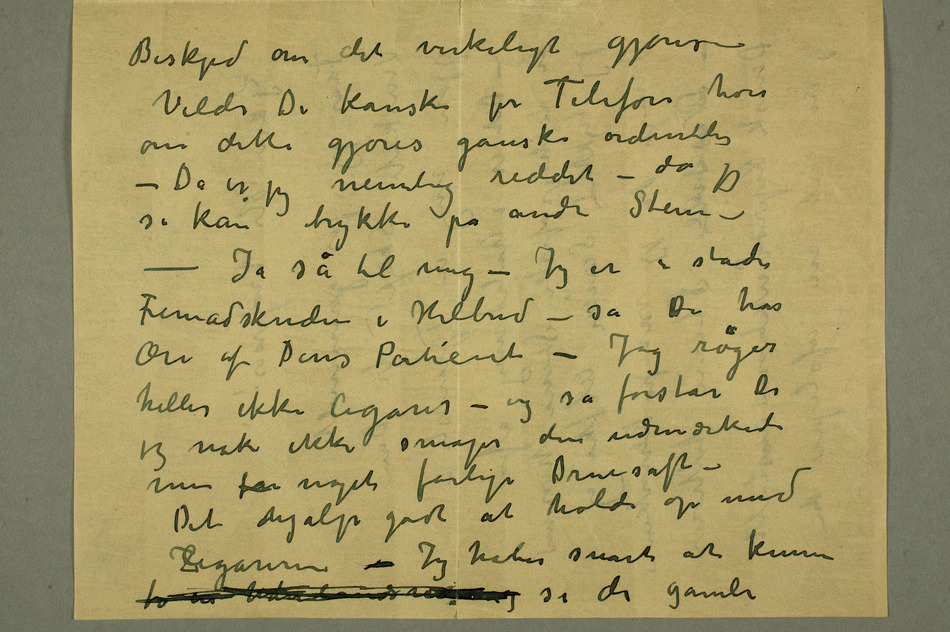 Beskjed om det virkeligt gjøres –
Vilde De kanske pr Telefon høre
om dette gjøres ganske ordentlig
– Da er jeg nemlig reddet – da jeg
så kan trykke på andre Stene –
— Ja så til mig – Jeg er i stadi
Fremadskriden i Helbred – så De har
Ære af Deres Patient – Jeg røger
heller ikke Cigarer – og så forstår De
jeg nok ikke smager den udmærkede
men noget farlige Druesaft –
Det hjalp godt at holde op med
Zigarerne – Jeg håber snart at kunne
se de gamle